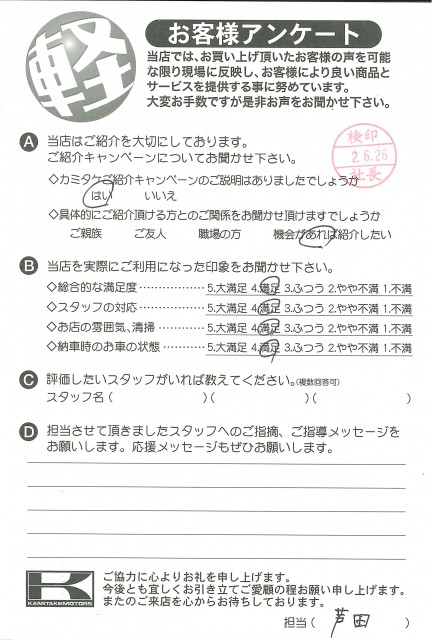 軽
お客様アンケート
当店では、お買い上げ頂いたお客様の声を可能
な限り現場に反映し、お客様により良い商品と
サービスを提供する事に努めています。
大変お手数ですが是非お声をお聞かせ下さい。
A 当店はご紹介を大切にしております。
ご紹介キャンペーンについてお聞かせ下さい。
検印
2.6.26
社長
◇カミタケご紹介キャンペーンのご説明はありましたでしょうか
はい いいえ
◇具体的にご紹介頂ける方とのご関係をお聞かせ頂けますでしょうか
ご親族 ご友人 職場の方 機会があれば紹介したい
B 当店を実際にご利用になった印象をお聞かせ下さい。
◇総合的な満足度………………5.大満足 4.満足 3.ふつう 2.やや不満 1.不満
◇スタッフの対応………………5.大満足 4.満足 3.ふつう 2.やや不満 1.不満
◇お店の雰囲気、清掃…………5.大満足 4.満足 3.ふつう 2.やや不満 1.不満
◇納車時のお車の状態…………5.大満足 4.満足 3.ふつう 2.やや不満 1.不満
C 評価したいスタッフがいれば教えてください。(複数回答可)
スタッフ名( )( )( )
D 担当させて頂きましたスタッフへのご指摘、ご指導メッセージを
お願いします。応援メッセージもぜひお願いします。
K
KAMITAKEMOTORS
ご協力に心よりお礼を申し上げます。
今後とも宜しくお引き立てご愛顧の程お願い申し上げます。
またのご来店を心からお待ちしております。
担当( 芦田 )